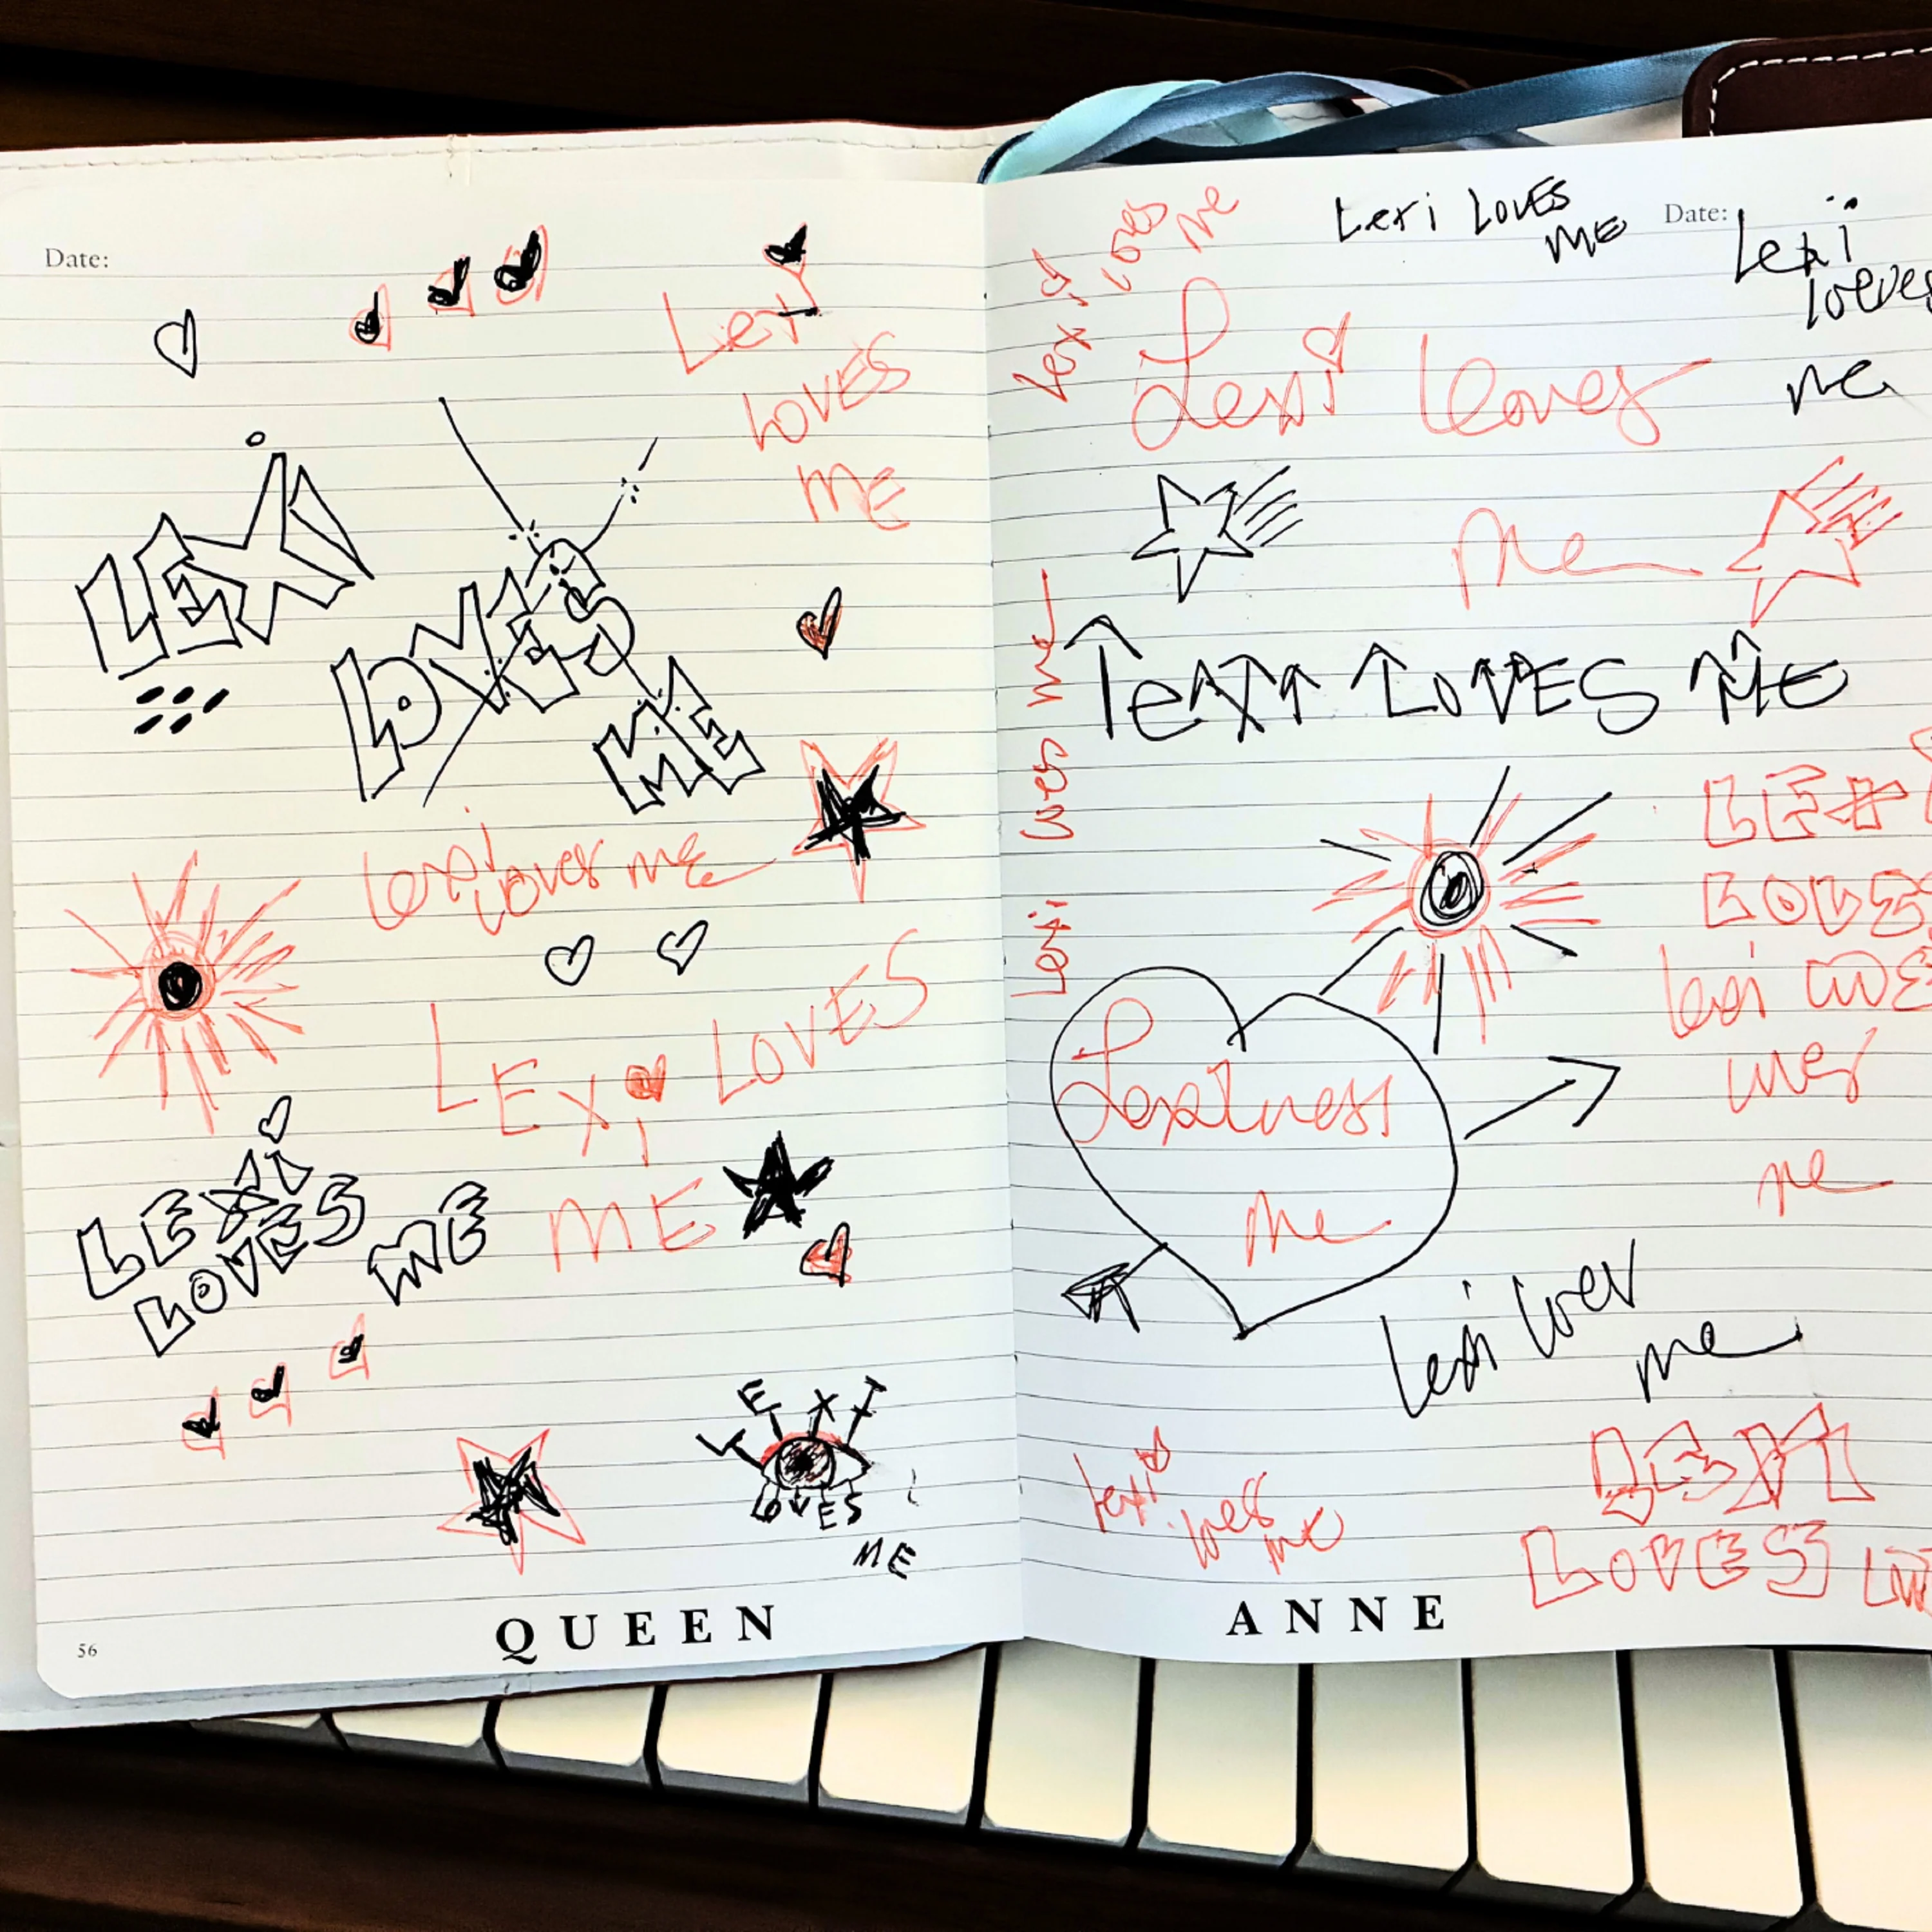 Date:
LEXI
LOVES
ME
Lexi
LOVES
ME
Lexi
Loves me
LEXI LOVES
ME
LEXI
LOVES
ME
LEXI
LOVES
ME
56
QUEEN
Lexi Loves
me
Lexi LOVES
ME
Date:
Lexi
loeves
me
Lexi loves
me
Lexi loves me
LeXI LOVES ME
LEXI
LOVES
Lexi
me
me
Lexi loves
me
Lexi
loves
me
LEXI
LOVES
ANNE